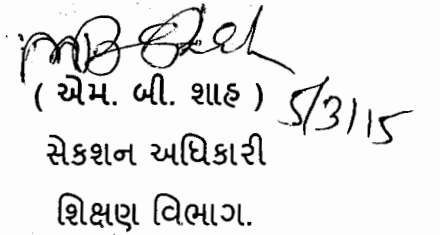 MB Shah
( એમ. બી. શાહ ) 5/3/15
સેકશન અધિકારી
શિક્ષણ વિભાગ.